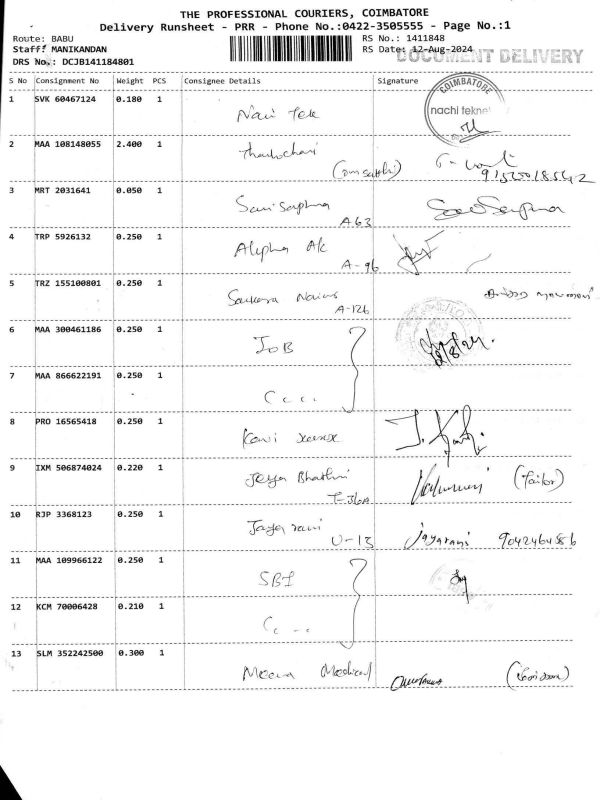 THE PROFESSIONAL COURIERS, COIMBATORE
Delivery Runsheet - PRR - Phone No.:0422-3505555 - Page No.:1
Route: BABU
RS No.: 1411848
Staff: MANIKANDAN
RS Date: 12-Aug-2024
DOCUMENT DELIVERY
DRS No.: DCJB141184801
S No Consignment No Weight PCS Consignee Details Signature
COIMBATORE
nachi tekne
1 SVK 60467124 0.180 1
2 MAA 108148055 2.400 1
3 MRT 2031641 0.050 1
A63
4 TRP 5926132 0.250 1 Alpha
A-96
5 TRZ 155100801 0.250 1
A-126
6 MAA 300461186 0.250 1 IOB
7 MAA 866622191 0.250 1
8 PRO 16565418 0.250 1
9 IXM 506874024 0.220 1 Jeya (Tailor)
10 RJP 3368123 0.250 1 Jayarani Jayarani 9042464586
U-13
11 MAA 109966122 0.250 1 SBI
12 KCM 70006428 0.210 1
13 SLM 352242500 0.300 1 Meena Medical